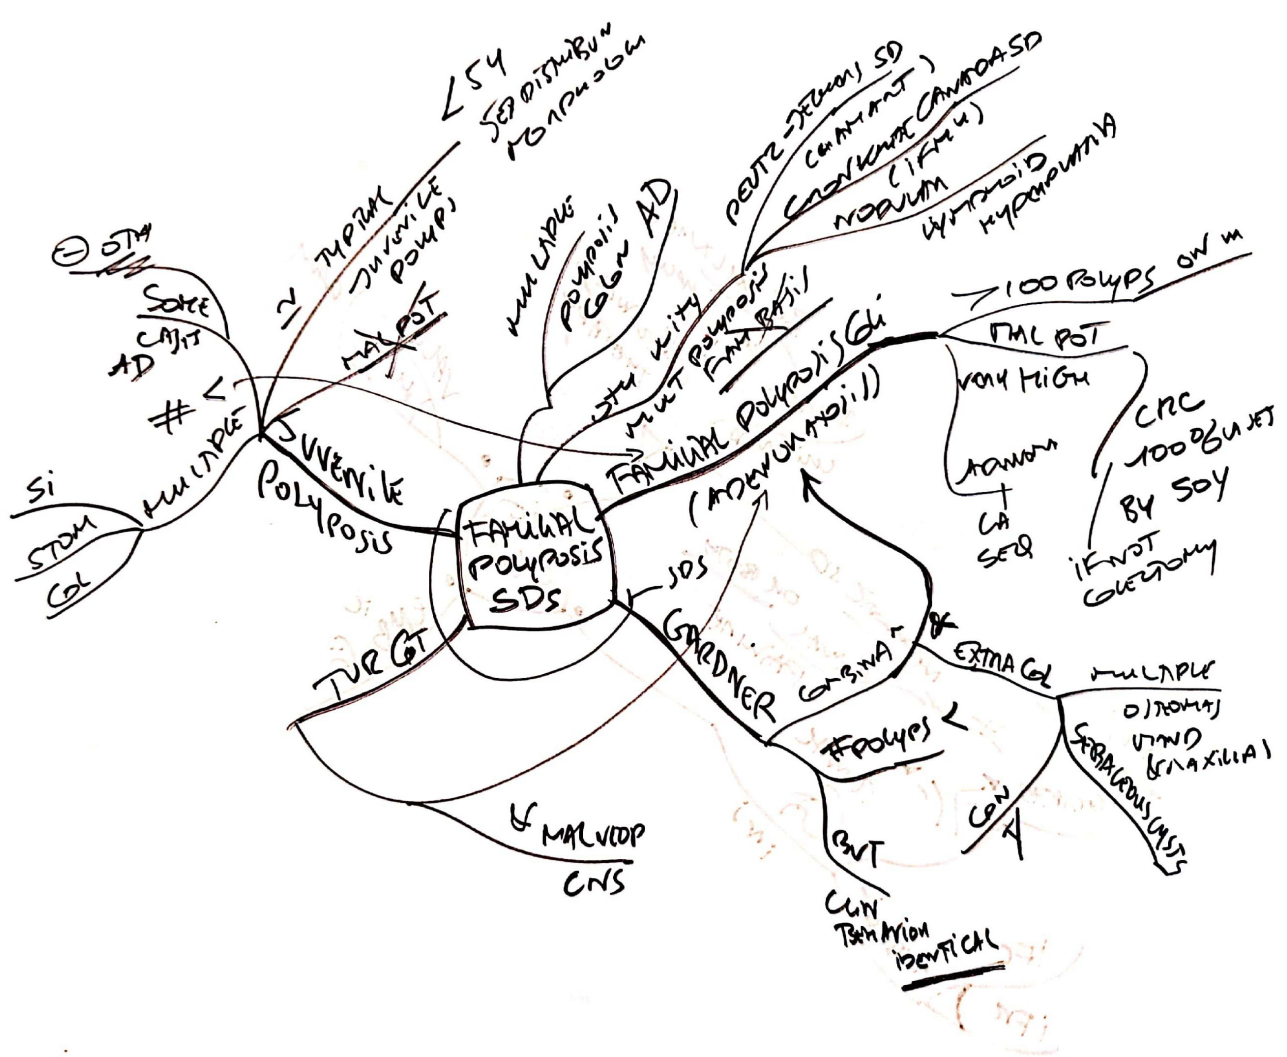 FAMILIAL
POLYPOSIS
SDs
JUVENILE
POLYPOSIS
MULTIPLE
Si
STOM
COL
# <
SOME
CASES
AD
⊖ OTH
≃ TYPICAL
JUVENILE
POLYPS
<5Y
SED DISTRIBUN
MORPHOLOGY
MAL POT
MULTIPLE
POLYPOSIS
COLON
AD
OTH
MULT POLYPOSIS
FAM BASIS
PEUTZ-JEGHERS SD
(HAMART)
CRONKHITE CANADA SD
NODULAR
LYMPHOID
HYPERPLASIA
FAMILIAL POLYPOSIS Coli
(ADENOMATOSIS)
>100 POLYPS
MAL POT
VERY HIGH
ADENOMA
CA
SEQ
CRC
100% CASES
BY 50Y
iF NOT
COLECTOMY
SDS
GARDNER
COMBINAⁿ
&
EXTRACOL
MULTIPLE
OSTEOMAS
(MAXILLA)
SEBACEOUS CYSTS
CON
# POLYPS <
BUT
CLIN
BEHAVIOR
iDENTICAL
TURCOT
MAL
CNS